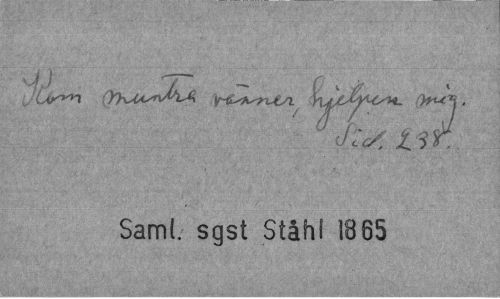 Kom muntra vänner, hjelpen mig.
Sid. 238.
Saml. sgst Ståhl 1865